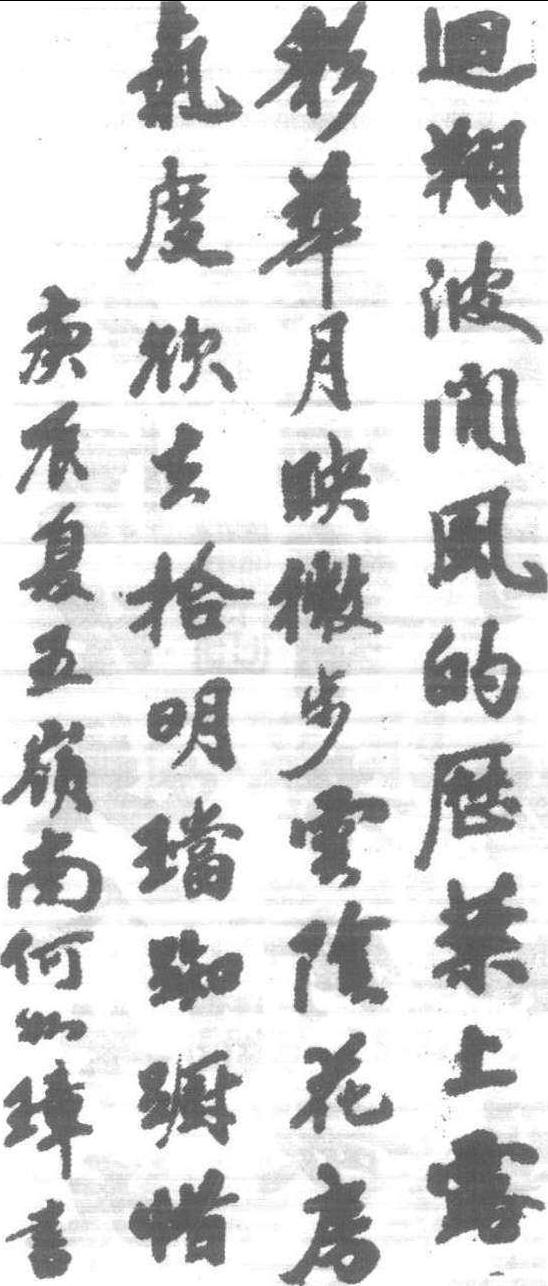 迴翔波間風的歷葉上露
彩華月映微步雲陰花房
氣度欲去拾明璫踟躕惜
庚辰夏五嶺南何璋書